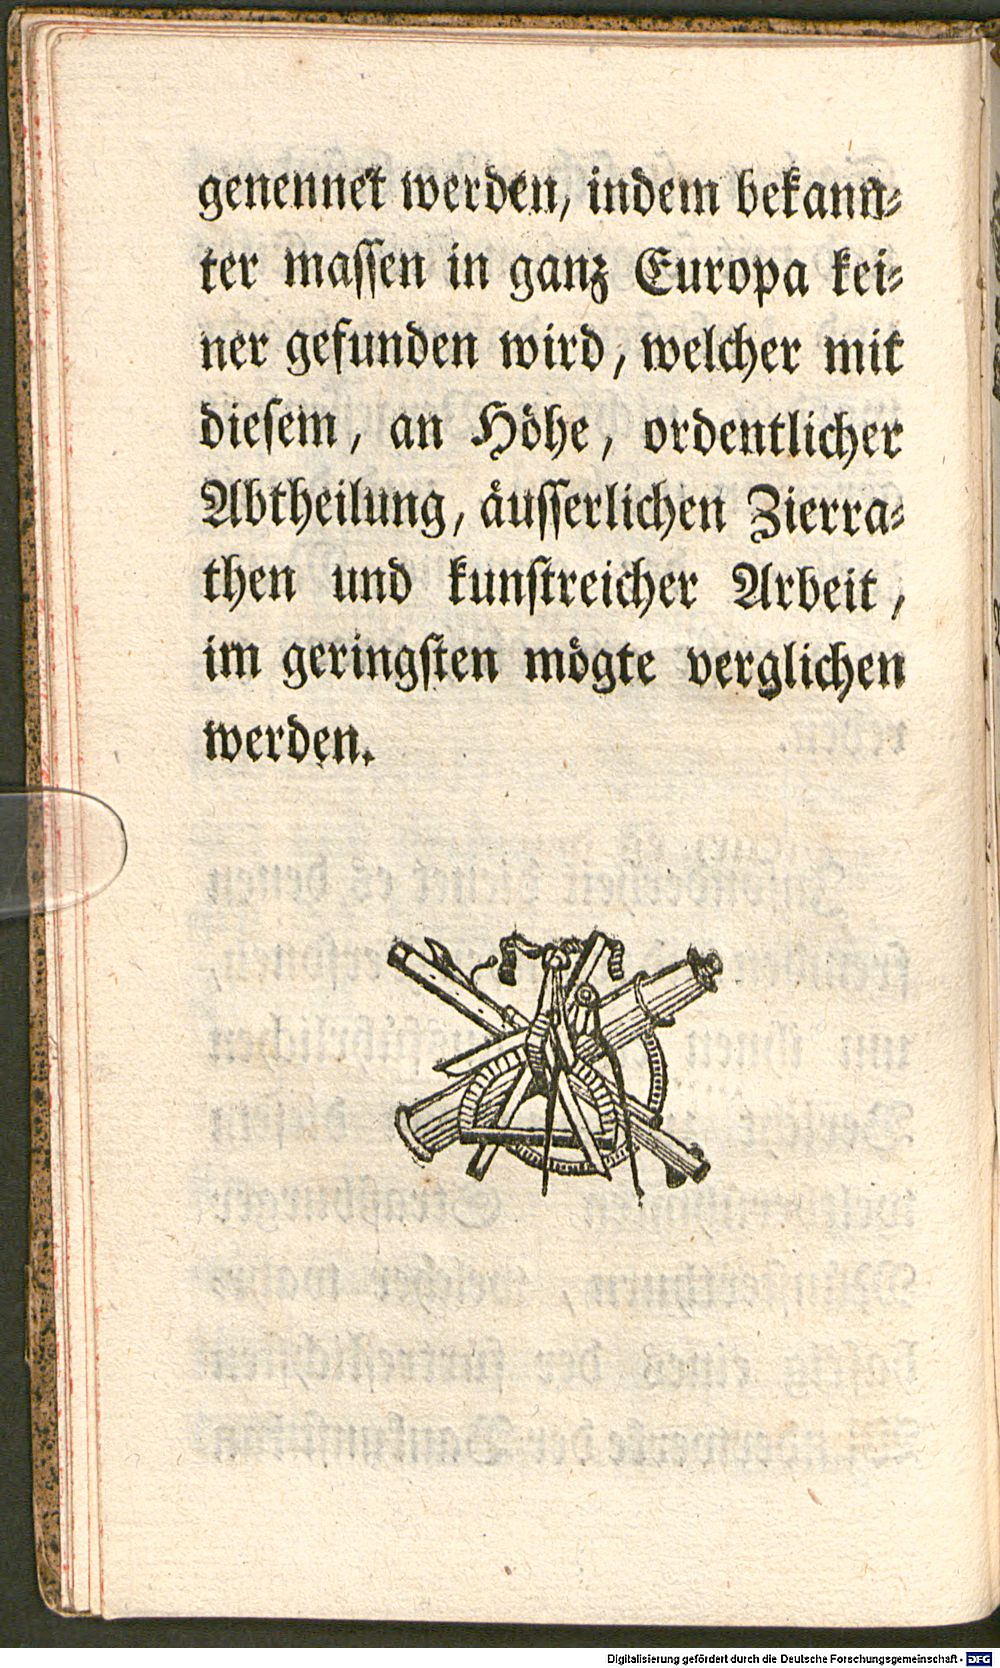 genennet werden, indem bekann⸗
ter massen in ganz Europa kei⸗
ner gefunden wird, welcher mit
diesem, an Höhe, ordentlicher
Abtheilung, äusserlichen Zierra⸗
then und kunstreicher Arbeit,
im geringsten mögte verglichen
werden.
Digitalisierung gefördert durch die Deutsche Forschungsgemeinschaft - DFG